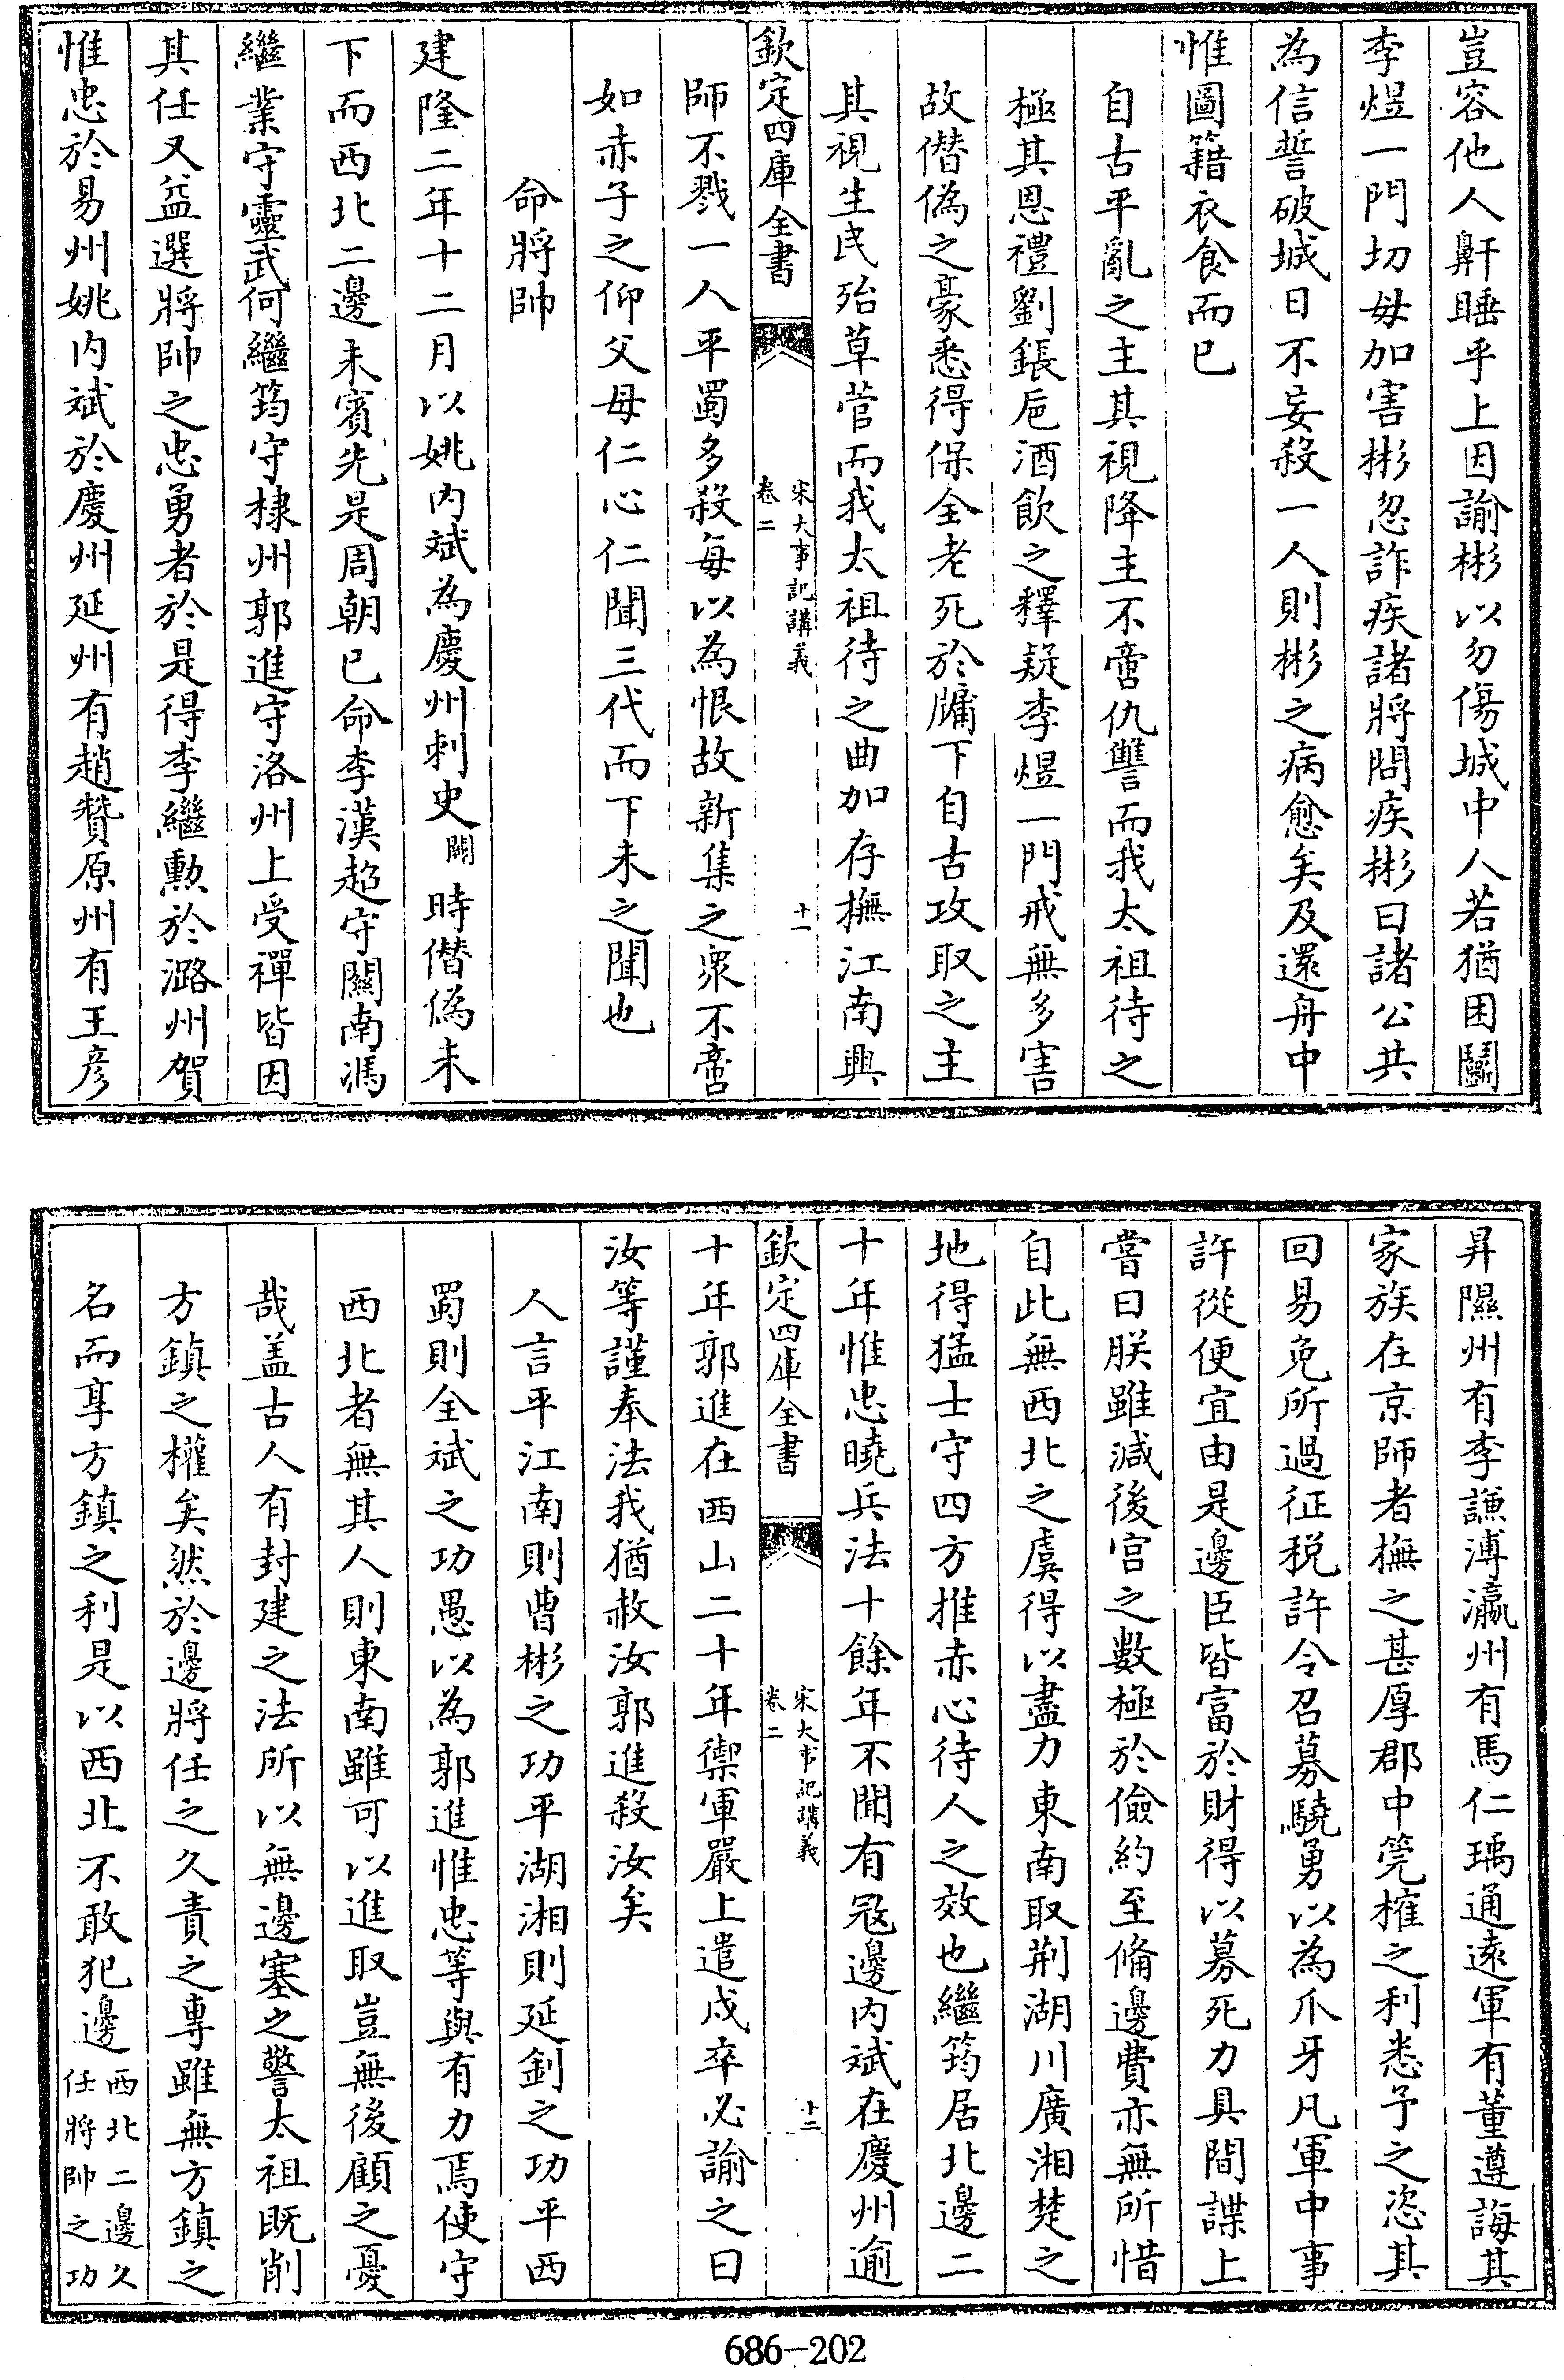 豈容他人鼾睡乎上因諭彬以勿傷城中人若猶困鬬
李煜一門切毋加害彬忽詐疾諸將問疾彬曰諸公共
為信誓破城日不妄殺一人則彬之病愈矣及還舟中
惟圖籍衣食而已
自古平亂之主其視降主不啻仇讐而我太祖待之
極其恩禮劉鋹巵酒飲之釋疑李煜一門戒無多害
故僭偽之豪悉得保全老死於牖下自古攻取之主
其視生民殆草菅而我太祖待之曲加存撫江南興
欽定四庫全書
宋大事記講義
卷二
十一
師不戮一人平蜀多殺每以為恨故新集之衆不啻
如赤子之仰父母仁心仁聞三代而下未之聞也
命將帥
建隆二年十二月以姚内斌為慶州刺史闕時僭偽未
下而西北二邊未賓先是周朝已命李漢超守關南馮
繼業守靈武何繼筠守棣州郭進守洺州上受禪皆因
其任又益選將帥之忠勇者於是得李繼勳於潞州賀
惟忠於易州姚内斌於慶州延州有趙贊原州有王彦
昇隰州有李謙溥瀛州有馬仁瑀通遠軍有董遵誨其
家族在京師者撫之甚厚郡中筦榷之利悉予之恣其
回易免所過征税許令召募驍勇以為爪牙凡軍中事
許從便宜由是邊臣皆富於財得以募死力具間諜上
嘗曰朕雖減後宫之數極於儉約至脩邊費亦無所惜
自此無西北之虞得以盡力東南取荆湖川廣湘楚之
地得猛士守四方推赤心待人之效也繼筠居北邊二
十年惟忠曉兵法十餘年不聞有冦邊内斌在慶州逾
欽定四庫全書
宋大事記講義
卷二
十二
十年郭進在西山二十年禦軍嚴上遣戍卒必諭之曰
汝等謹奉法我猶赦汝郭進殺汝矣
人言平江南則曹彬之功平湖湘則延釗之功平西
蜀則全斌之功愚以為郭進惟忠等與有力焉使守
西北者無其人則東南雖可以進取豈無後顧之憂
哉盖古人有封建之法所以無邊塞之警太祖既削
方鎮之權矣然於邊將任之久責之專雖無方鎮之
名而享方鎮之利是以西北不敢犯邊西北二邊久
任將帥之功
686-202